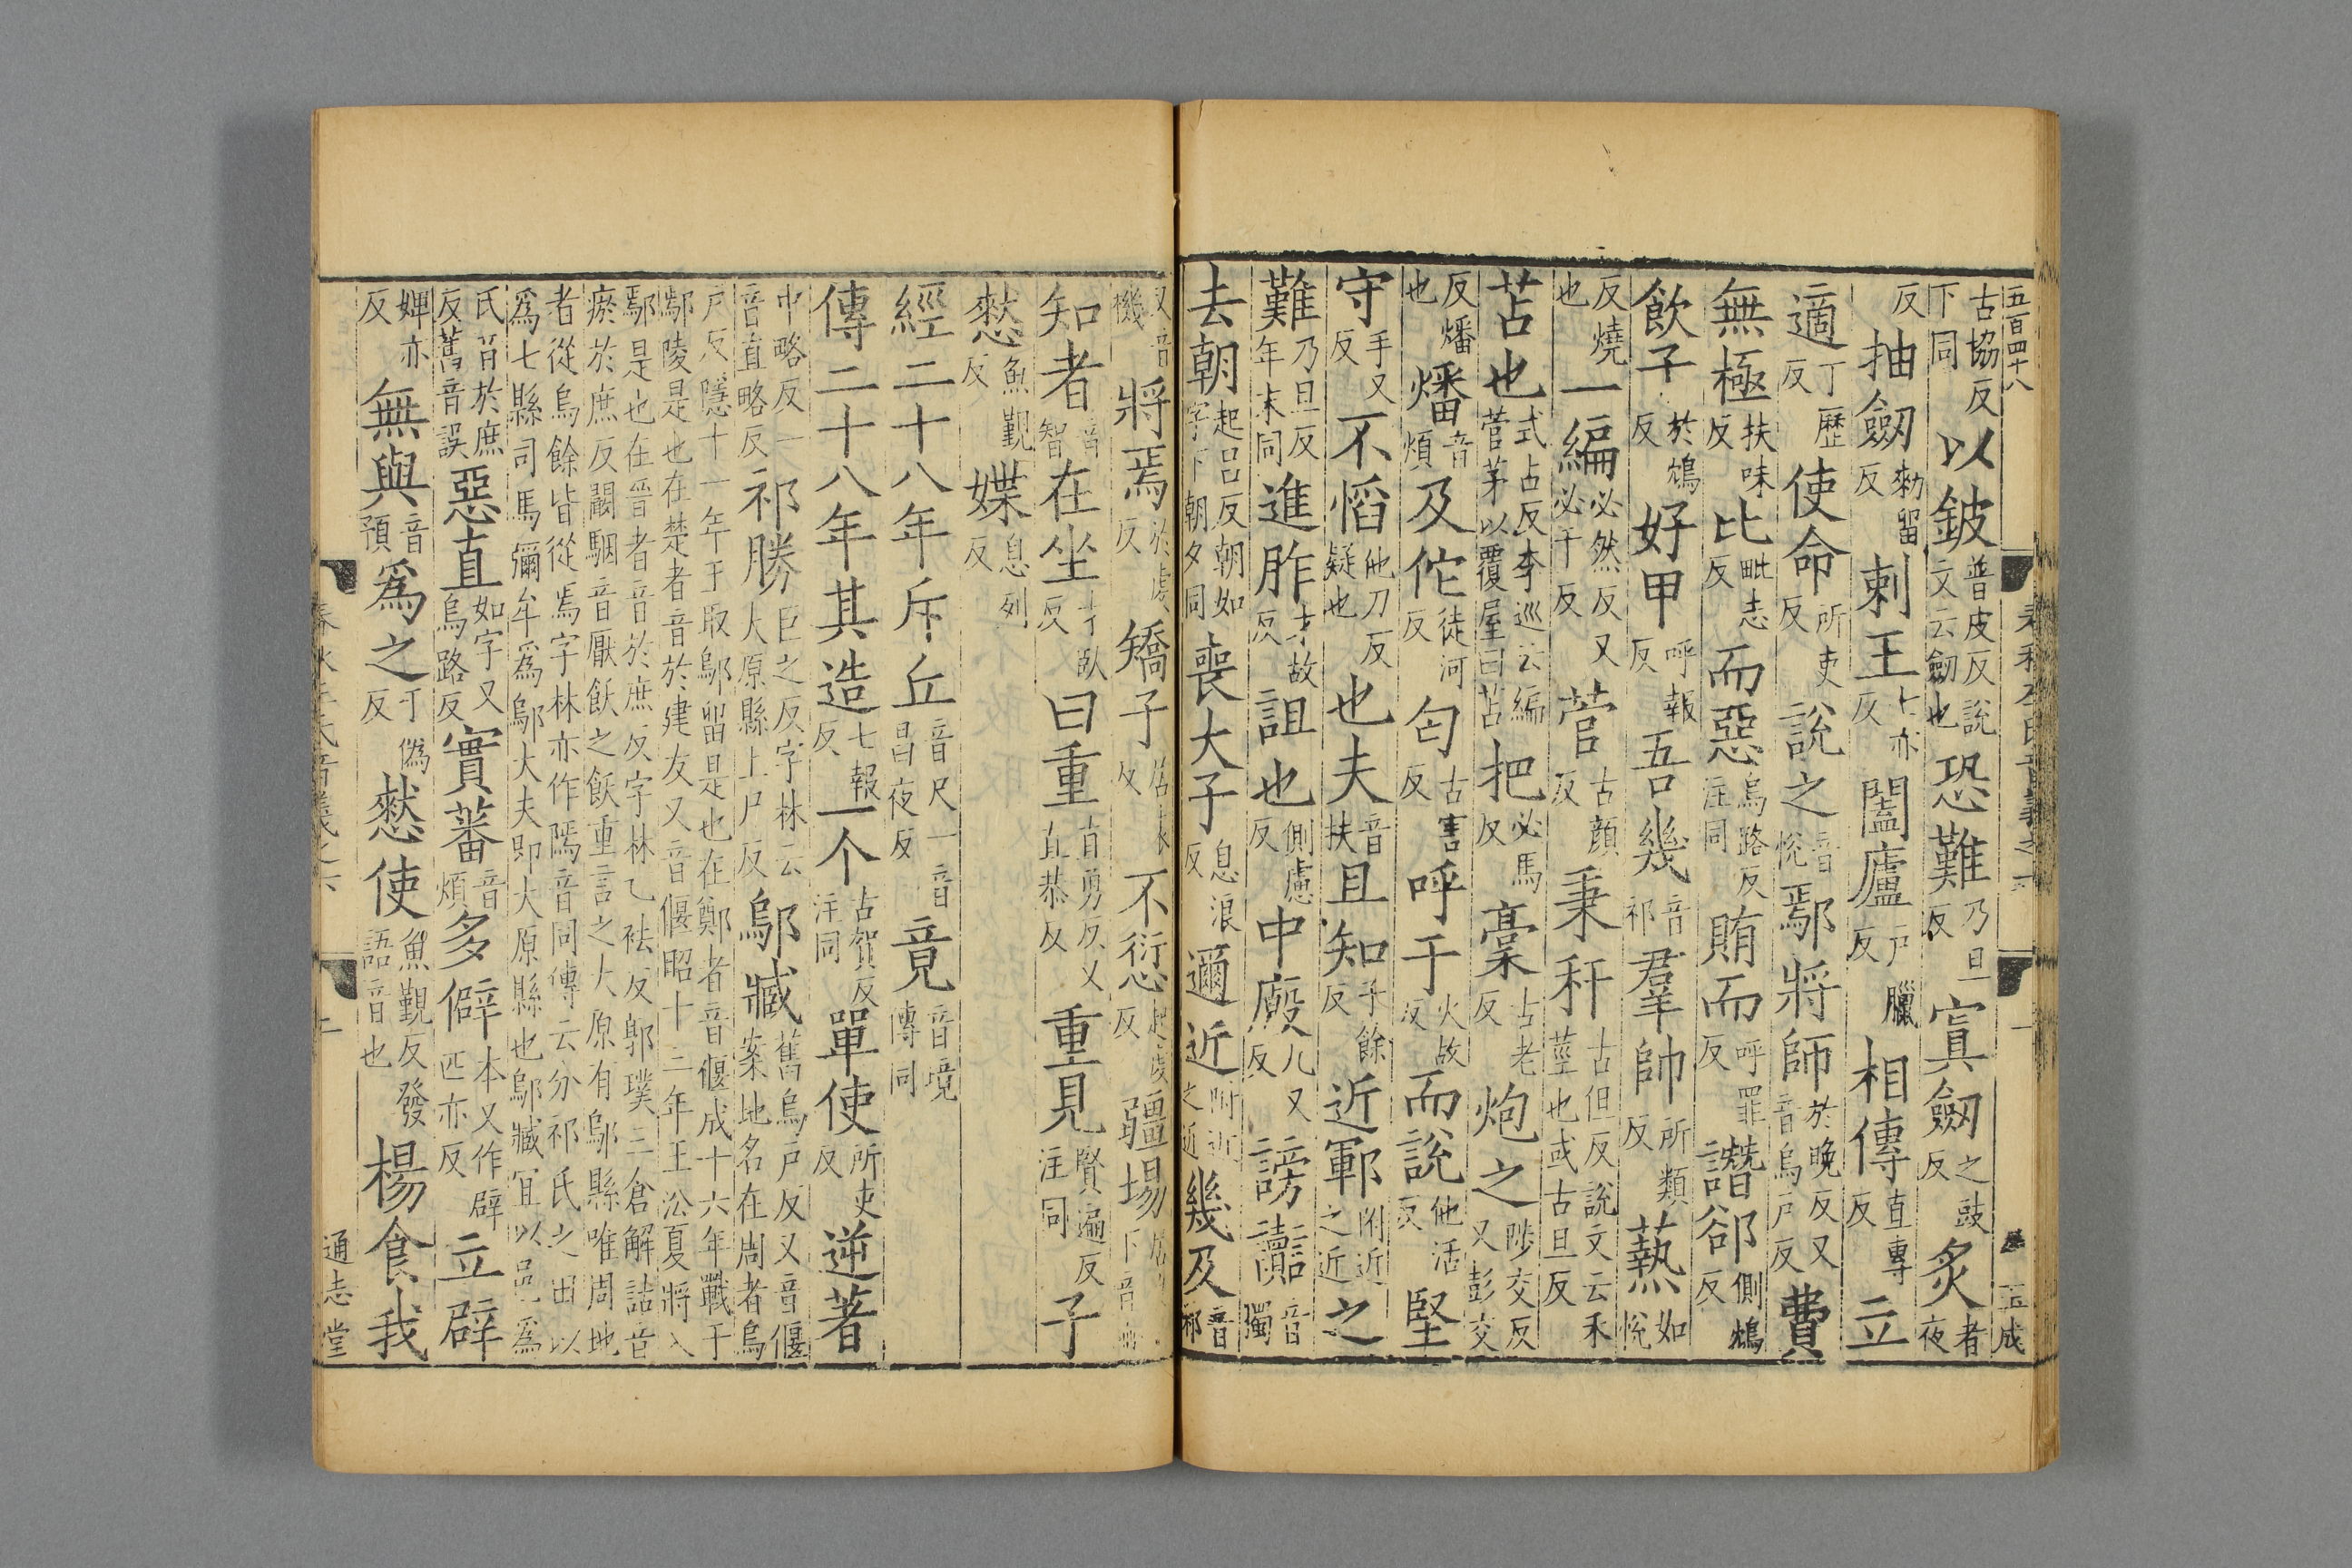 五百四十八
古協反下同以鈹普皮反說文云劔也恐難乃旦反寘劔之豉反炙者夜
反抽劔勑留反刺王七亦反闔廬戸臘反相傳直專反立
適丁歷反使命所吏反說之音悅鄢將師於晚反又音烏戸反費
無極扶味反比毗志反而惡烏路反注同賄而呼罪反譖郤側鴆反
飲子於鴆反好甲呼報反吾幾音祁羣帥所類反爇如悅
反燒也一編必然反又必千反菅古顔反秉秆古但反說文云禾莖也或古旦反
苫也式占反李巡云編菅茅以覆屋曰苫把必馬反稾古老反炮之陟交反又彭交
反燔也燔音煩及佗徒河反匄古害反呼于火故反而說他活反堅
守手又反不慆他刀反疑也也夫音扶且知子餘反近鄆附近之近之
難乃旦反年末同進胙才故反詛也側慮反中廄九又反謗讟音獨
去朝起呂反朝如字下朝夕同喪大子息浪反邇近附近之近幾及音祁
又音機將焉於虔反矯子居表反不愆起虔反疆埸
知者音智在坐才臥反曰重直勇反又直恭反重見賢遍反注同子
憖魚覲反媟息列反
經二十八年斥丘音尺一音昌夜反竟音境傳同
傳二十八年其造七報反一个古賀反注同單使所吏反逆著
中略反一音直略反祁勝巨之反字林云大原縣上尸反鄔臧舊烏戸反又音偃案地名在周者烏
戸反隱十一年王取鄔留是也在鄭者音偃成十六年戰于
鄢陵是也在楚者音於建反又音偃昭十三年王㳂夏將入
鄢是也在晉者音於庶反字林乙祛反郭璞三倉解詁音
瘀於庶反闞駰音厭飫之飫重言之大原有鄔縣唯周地
者從烏餘皆從焉字林亦作隖音同傳云分祁氏之田以
爲七縣司馬彌牟爲鄔大夫即大原縣也鄔臧冝以邑爲
氏音於庶反舊音誤惡直如字又烏路反實蕃音煩多僻本又作辟匹亦反立辟
婢亦反無與音預爲之于僞反憖使魚覲反發語音也楊食我
通志堂